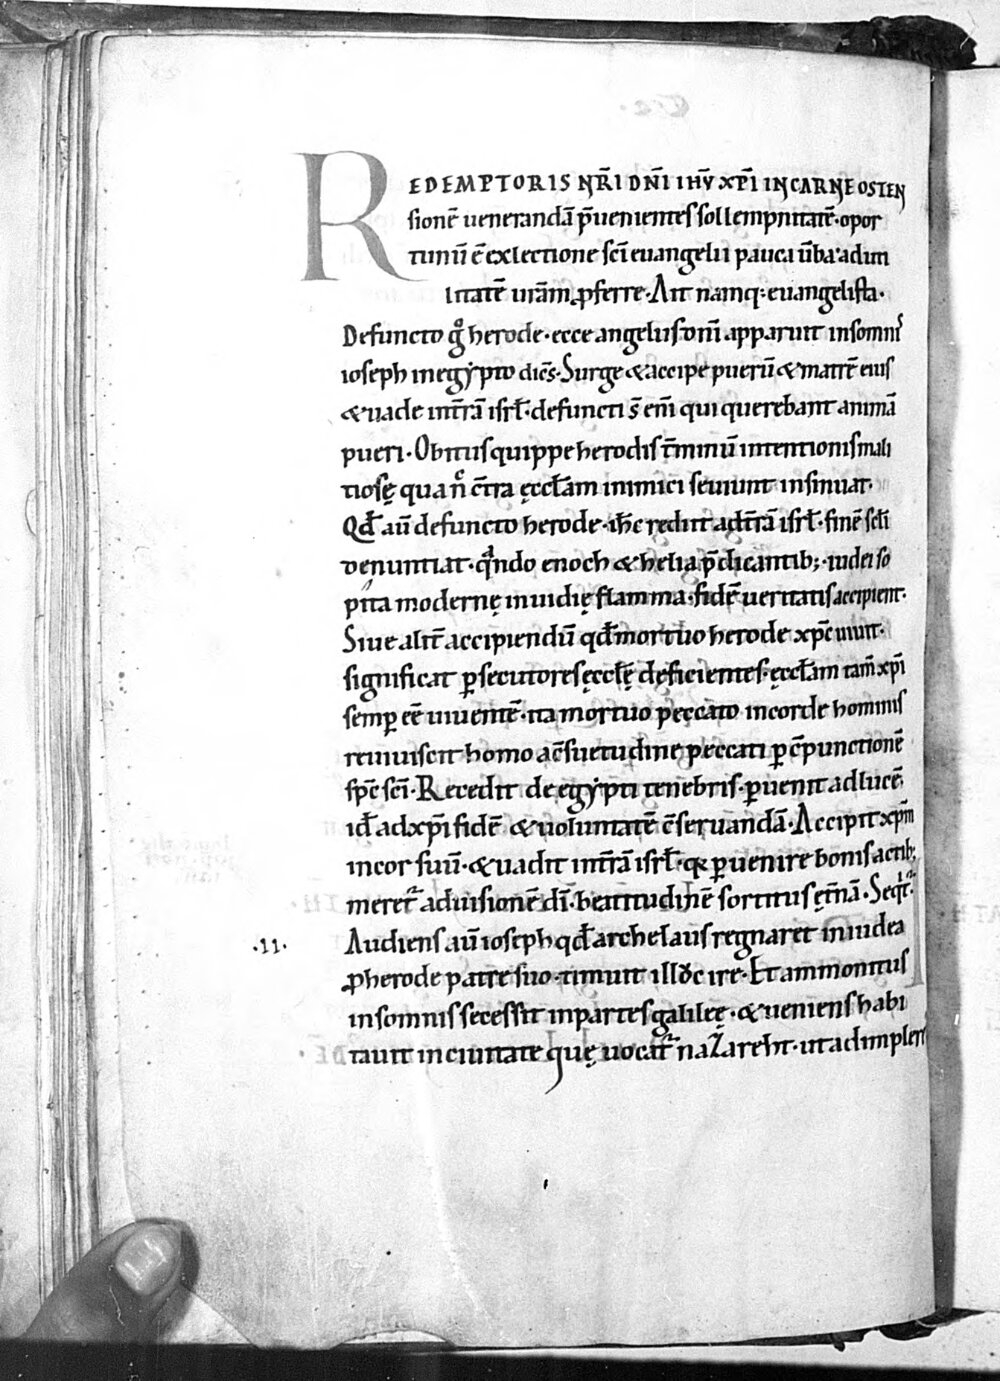 REDEMPTORIS NR̄I DN̄I IHV̄ XP̄I IN CARNE OSTEN
sionē uenerandā p̄uenientes sollempnitatē· opor
tunū ē ex lectione sc̄i euangelii pauca ūba· ad uti
litatē urām ꝓferre· Ait namq; euangelista·
Defuncto gͦ herode· ecce angelus dn̄i apparuit in somnis
ioseph in egẏpto dicēs· Surge & accipe puerū & matrē eius
& uade in t̄rā isrl̄· defuncti s̄ enī qui querebant animā
pueri· Obitus quippe herodis t̄minū intentionis mali
tiosę qua nc̄ c̄tra ęccl̄am inimici seuiunt insinuat·
Qd̄ aū defuncto herode· ih̄c redit ad t̄rā isrl̄· finē sc̄li
denuntiat· qͣndo enoch & helia p̄dicantib;· iudei so
pita modernę inuidię flamma· fidē ueritatis accipient·
Siue alit̄ accipiendū qd̄ mortuo herode xp̄c uiuit·
significat ꝑsecutores ęccl̄ę deficientes· ęccl̄am tam̄ xp̄i
semꝑ eē uiuentē· ita mortuo peccato in corde hominis
reuiuiscit homo ac̄suetudine peccati ꝑ c̄punctionē
sp̄c sc̄i· Recedit de egẏpti tenebris· ꝑuenit ad lucē·
id̄ ad xp̄i fidē & uoluntatē c̄seruandā· Accipit xp̄m
in cor suū· & uadit in t̄rā isrl̄· qꝛ ꝑuenire bonis actib;
meret᷑ ad uisionē dī· beatitudinē sortitus ęt̄nā· Seqit᷑·
·11· Audiens aū ioseph qd̄ archelaus regnaret in iudea
ꝓ herode patre suo· timuit illuc ire· Et ammonitus
in somnis secessit in partes galileę· & ueniens habi
tauit in ciuitate quę uocat᷑ nazareht· ut adimpleret᷑